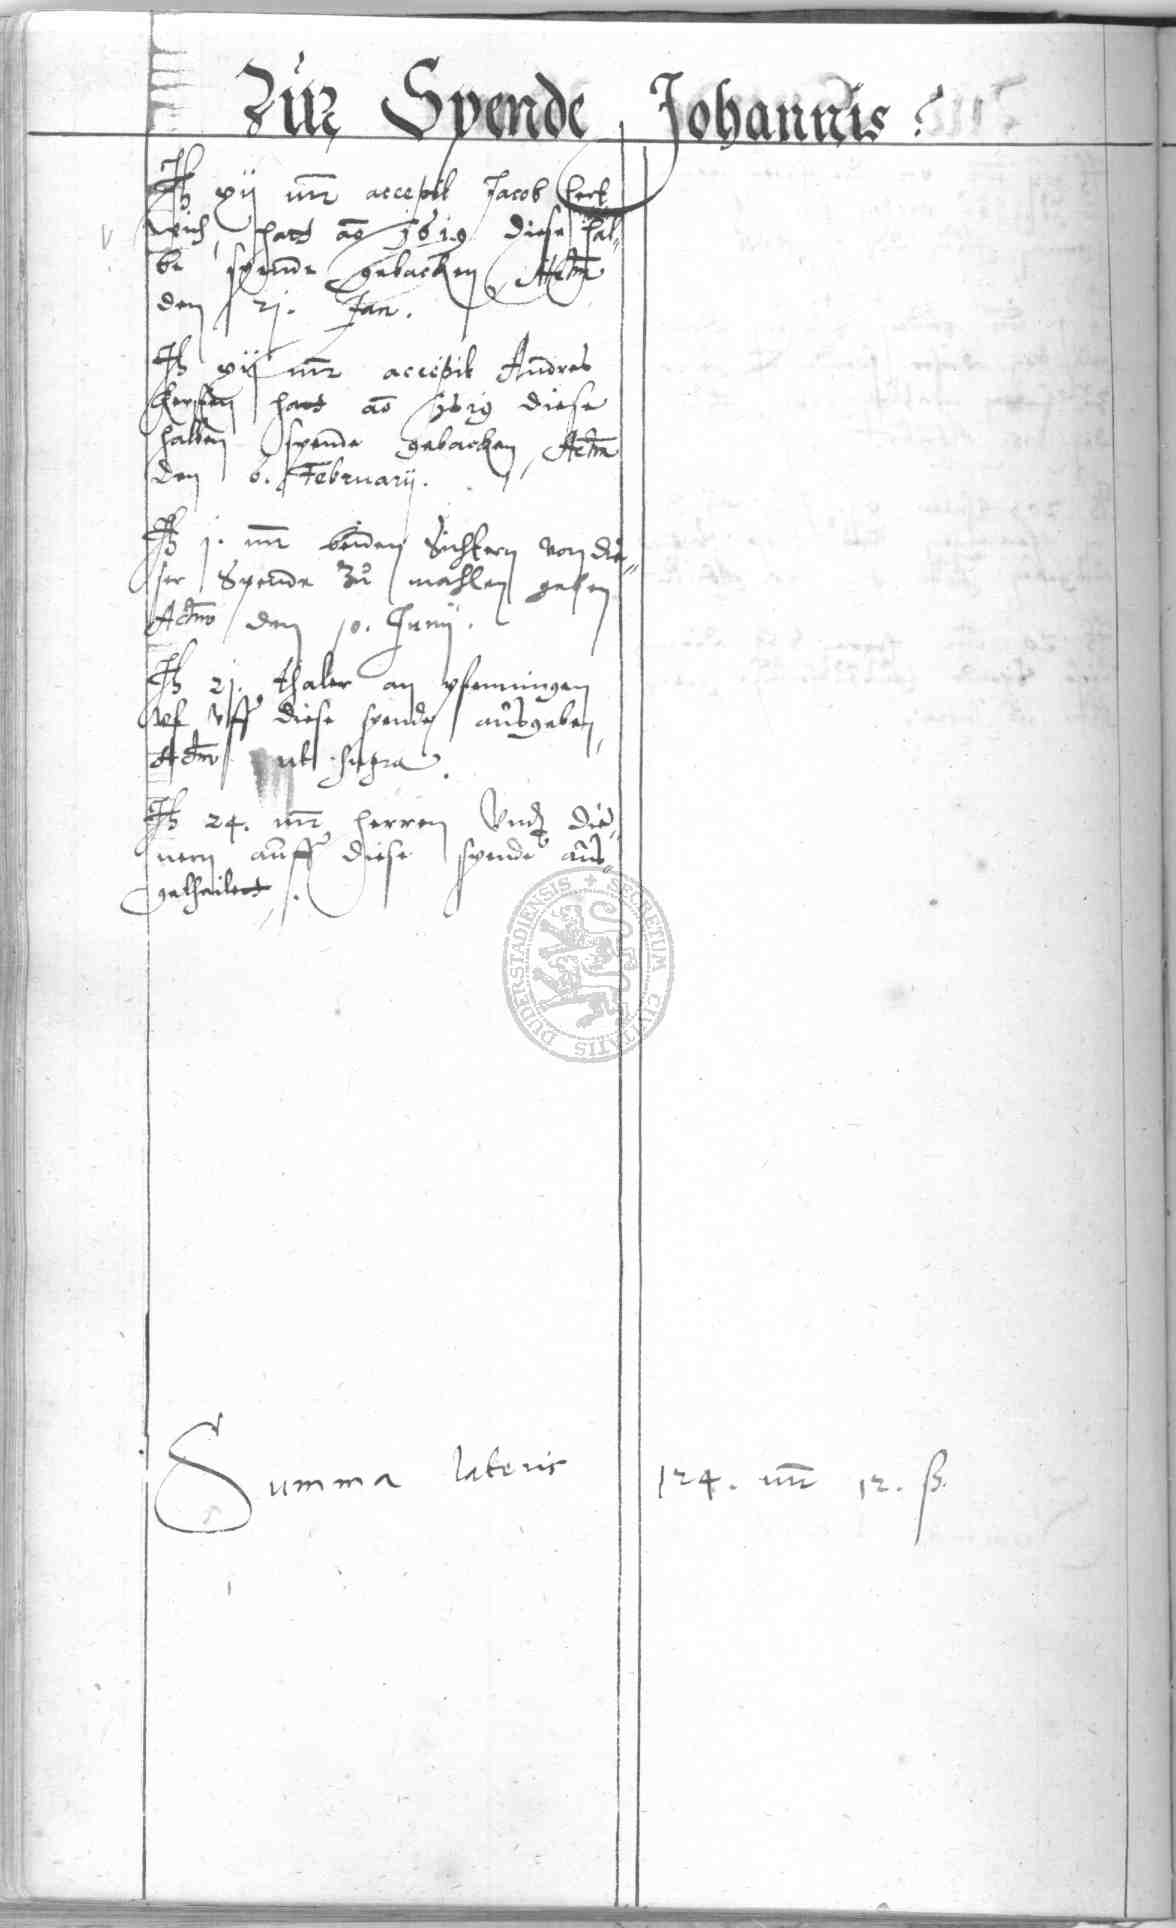 Zur Spende Johannis.
It xij mr accepit Jacob Hert
wich, hatt ao 1619 diese hal-
be spende gebacken, Actum
den 21. Jan.
It xij mr accepit Andres
Kersten hatt ao 1619 diese
halben spende gebacken, Actum
den 6. Februarij.
It 1. mr beiden Sichtern von die-
ser Spende zu mahlen geben
Actum den 10. Junij.
It 21. thaler an pfenningen
uff diese spende ausgeben,
Actum ut supra.
It 24. mr herren Undt die-
nern auff diese spende aus-
getheilett.
DUDERSTADIENSIS + SECRETUM CIVITATIS
Summa lateris 124. mr 12. ß